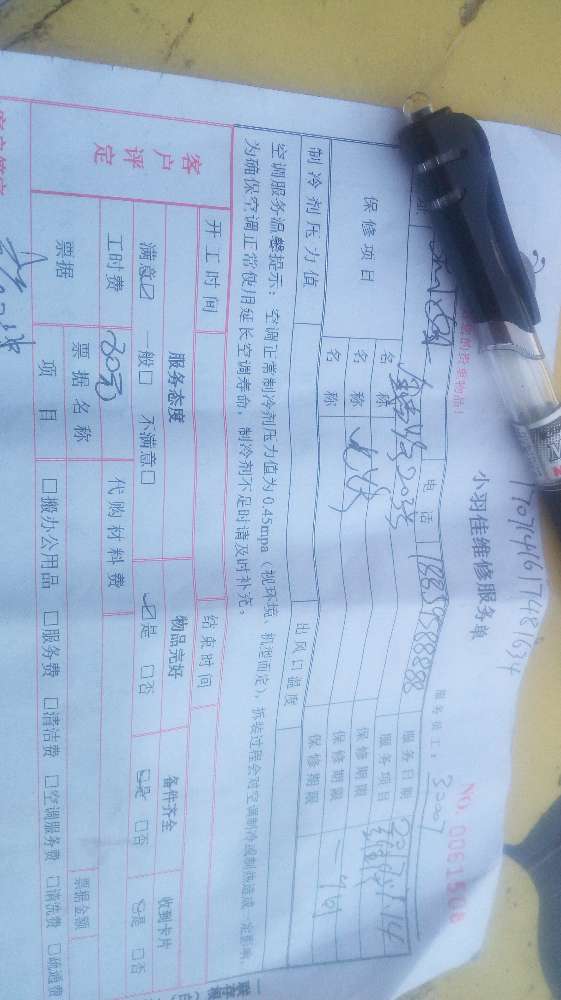 小羽佳维修服务单
NO. 0061508
服务员工：3007
电话
服务日期 2017.5.14
保修项目
名称
服务项目 维修
名称
保修期限 一个月
名称
保修期限
制冷剂压力值
出风口温度
空调服务温馨提示：空调正常制冷剂压力值为0.45mpa（视环境、机型而定），拆装过程会对空调制冷或制热造成一定影响，
为确保空调正常使用延长空调寿命，制冷剂不足时请及时补充。
开工时间
结束时间
客户评定
服务态度
物品完好
备件齐全
收到卡片
满意☑ 一般□ 不满意□
☑是 □否
☑是 □否
☑是 □否
工时费
代购材料费
票据
票据名称
票据金额
项目
□搬办公用品 □服务费 □清洁费 □空调服务费 □清洗费 □疏通费